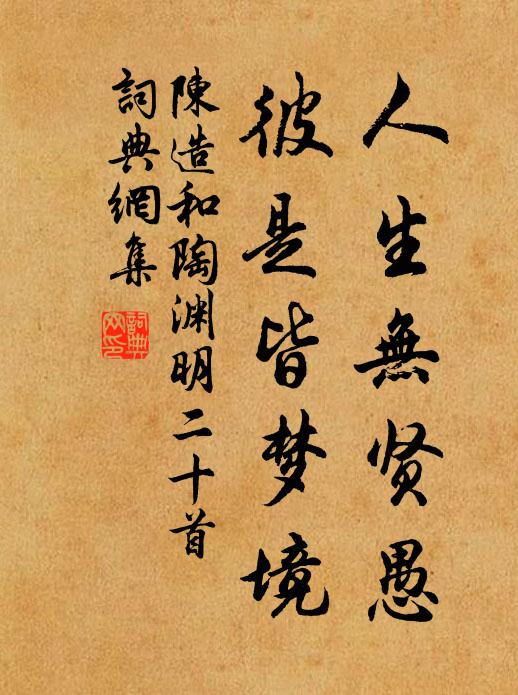 人生無贤愚
彼是皆梦境
陳造和陶渊明二十首
詞典網集
詞典网印